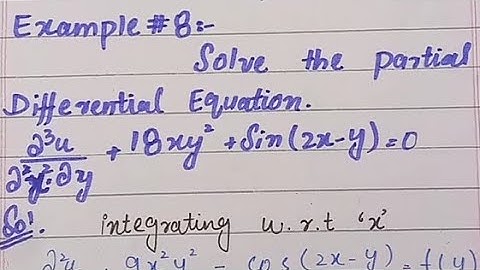 Example # 8:-
Solve the partial
Differential Equation.
∂³u/∂²x²∂y + 18xy² + Sin(2x-y) = 0
Sol. integrating w.r.t 'x'
∂²u + 9x²y² - cos(2x-y) = f(y)